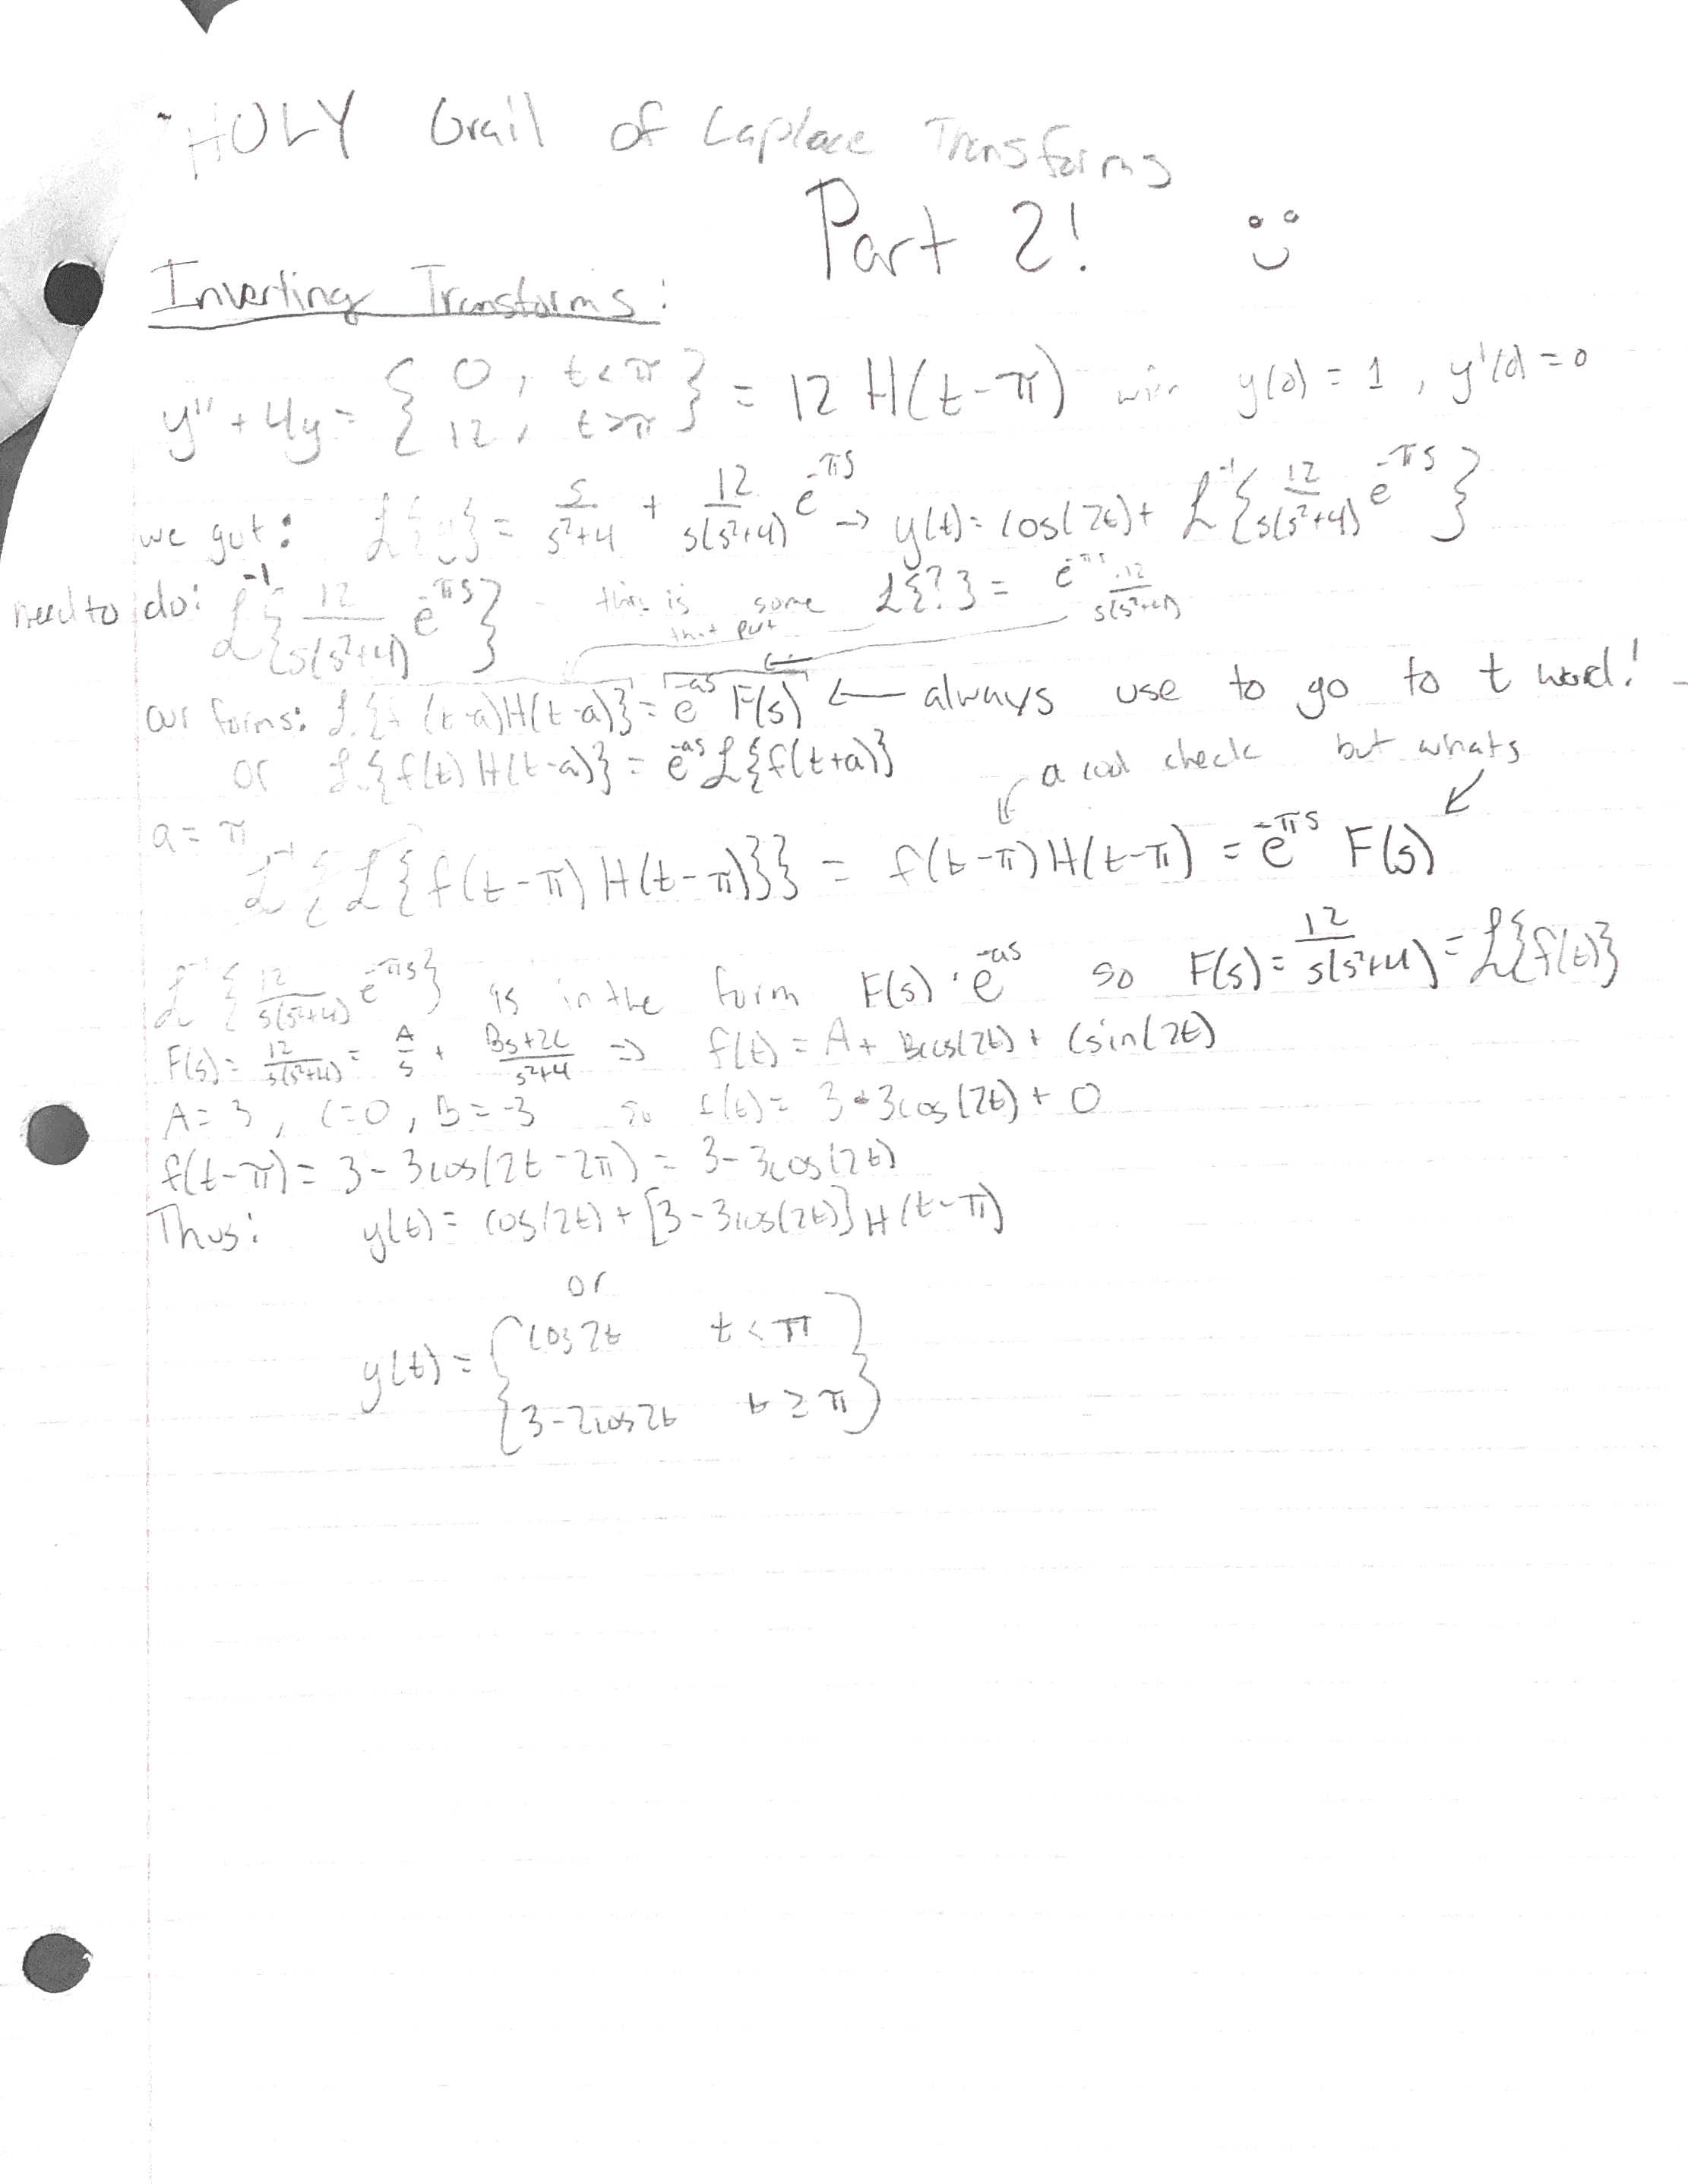 HOLY Grail of Laplace Transforms
Part 2!
Inverting Transforms:
y'' + 4y = { 0, t<π ; 12, t>π } = 12 H(t-π) with y(0) = 1, y'(0) = 0
we got: ℒ{y} = s/(s²+4) + 12/(s(s²+4)) e^(-πs) → y(t) = cos(2t) + ℒ⁻¹{12/(s(s²+4)) e^(-πs)}
need to do: ℒ⁻¹{12/(s(s²+4)) e^(-πs)} this is some ℒ{?} = e^(-πs) · 12/(s(s²+4))
that put
our forms: ℒ{f(t-a)H(t-a)} = e^(-as) F(s) ← always use to go to t world!
or ℒ{f(t) H(t-a)} = e^(-as) ℒ{f(t+a)}
a cool check but whats
a = π
ℒ⁻¹{ℒ{f(t-π) H(t-π)}} = f(t-π) H(t-π) = e^(-πs) F(s)
ℒ⁻¹{12/(s(s²+4)) e^(-πs)} is in the form F(s) · e^(-as) so F(s) = 12/(s(s²+4)) = ℒ{f(t)}
F(s) = 12/(s(s²+4)) = A/s + (Bs+2C)/(s²+4) ⇒ f(t) = A + Bcos(2t) + Csin(2t)
A = 3, C=0, B = -3 so f(t) = 3 - 3cos(2t) + 0
f(t-π) = 3 - 3cos(2t-2π) = 3 - 3cos(2t)
Thus: y(t) = cos(2t) + [3 - 3cos(2t)] H(t-π)
or
y(t) = { cos 2t t < π
3 - 2cos 2t t ≥ π }